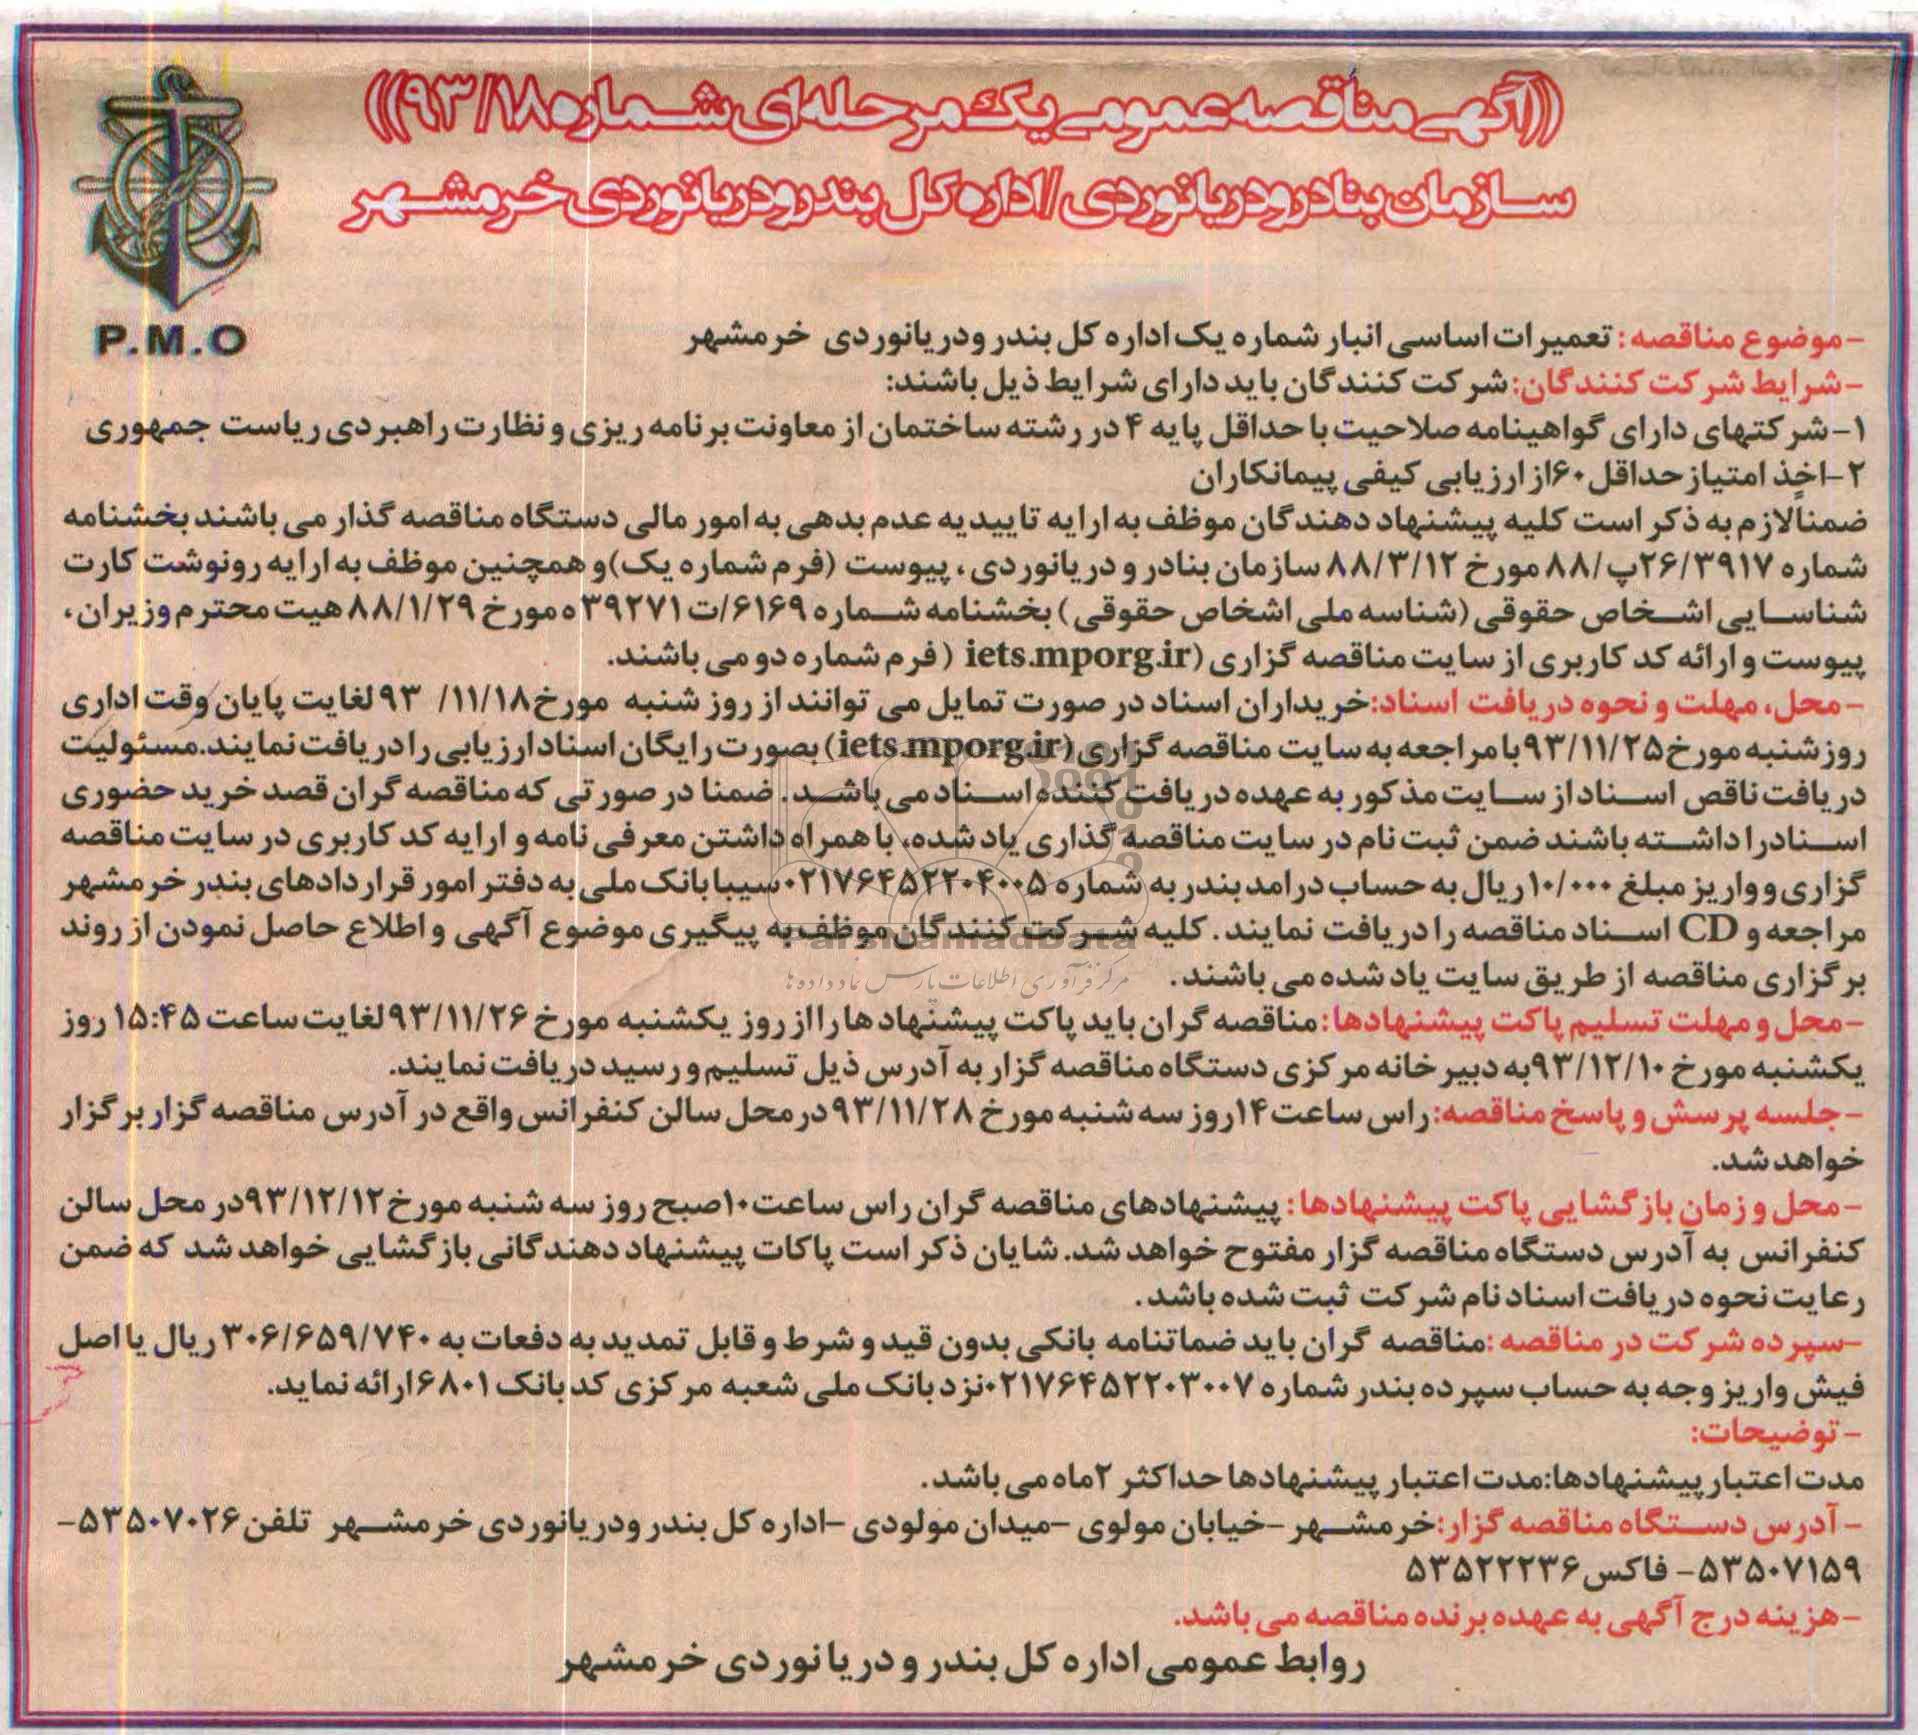 ((آگهی مناقصه عمومی یک مرحله ای شماره ۹۳/۱۸))
سازمان بنادر و دریانوردی / اداره کل بندر و دریانوردی خرمشهر
P.M.O
- موضوع مناقصه: تعمیرات اساسی انبار شماره یک اداره کل بندر و دریانوردی خرمشهر
- شرایط شرکت کنندگان: شرکت کنندگان باید دارای شرایط ذیل باشند:
۱- شرکتهای دارای گواهینامه صلاحیت با حداقل پایه ۴ در رشته ساختمان از معاونت برنامه ریزی و نظارت راهبردی ریاست جمهوری
۲- اخذ امتیاز حداقل ۶۰ از ارزیابی کیفی پیمانکاران
ضمناً لازم به ذکر است کلیه پیشنهاد دهندگان موظف به ارایه تاییدیه عدم بدهی به امور مالی دستگاه مناقصه گذار می باشند بخشنامه
شماره ۲۶/۳۹۱۷پ/۸۸ مورخ ۸۸/۳/۱۲ سازمان بنادر و دریانوردی، پیوست (فرم شماره یک) و همچنین موظف به ارایه رونوشت کارت
شناسایی اشخاص حقوقی (شناسه ملی اشخاص حقوقی) بخشنامه شماره ۶۱۶۹/ت ۳۹۲۷۱ ه مورخ ۸۸/۱/۲۹ هیت محترم وزیران،
پیوست و ارائه کد کاربری از سایت مناقصه گزاری (iets.mporg.ir ( فرم شماره دو می باشند.
- محل، مهلت و نحوه دریافت اسناد: خریداران اسناد در صورت تمایل می توانند از روز شنبه مورخ ۹۳/۱۱/۱۸ لغایت پایان وقت اداری
روز شنبه مورخ ۹۳/۱۱/۲۵ با مراجعه به سایت مناقصه گزاری (iets.mporg.ir) بصورت رایگان اسناد ارزیابی را دریافت نمایند. مسئولیت
دریافت ناقص اسناد از سایت مذکور به عهده دریافت کننده اسناد می باشد. ضمنا در صورتی که مناقصه گران قصد خرید حضوری
اسناد را داشته باشند ضمن ثبت نام در سایت مناقصه گذاری یاد شده، با همراه داشتن معرفی نامه و ارایه کد کاربری در سایت مناقصه
گزاری و واریز مبلغ ۱۰/۰۰۰ ریال به حساب درامد بندر به شماره ۰۲۱۷۶۴۵۲۲۰۴۰۰۵ سیبا بانک ملی به دفتر امور قراردادهای بندر خرمشهر
مراجعه و CD اسناد مناقصه را دریافت نمایند. کلیه شرکت کنندگان موظف به پیگیری موضوع آگهی و اطلاع حاصل نمودن از روند
برگزاری مناقصه از طریق سایت یاد شده می باشند.
مرکز فرآوری اطلاعات پارس نماد داده ها
- محل و مهلت تسلیم پاکت پیشنهادها: مناقصه گران باید پاکت پیشنهادها را از روز یکشنبه مورخ ۹۳/۱۱/۲۶ لغایت ساعت ۱۵:۴۵ روز
یکشنبه مورخ ۹۳/۱۲/۱۰ به دبیرخانه مرکزی دستگاه مناقصه گزار به آدرس ذیل تسلیم و رسید دریافت نمایند.
- جلسه پرسش و پاسخ مناقصه: راس ساعت ۱۴ روز سه شنبه مورخ ۹۳/۱۱/۲۸ در محل سالن کنفرانس واقع در آدرس مناقصه گزار برگزار
خواهد شد.
- محل و زمان بازگشایی پاکت پیشنهادها: پیشنهادهای مناقصه گران راس ساعت ۱۰ صبح روز سه شنبه مورخ ۹۳/۱۲/۱۲ در محل سالن
کنفرانس به آدرس دستگاه مناقصه گزار مفتوح خواهد شد. شایان ذکر است پاکات پیشنهاد دهندگانی بازگشایی خواهد شد که ضمن
رعایت نحوه دریافت اسناد نام شرکت ثبت شده باشد.
- سپرده شرکت در مناقصه: مناقصه گران باید ضماتنامه بانکی بدون قید و شرط و قابل تمدید به دفعات به ۳۰۶/۶۵۹/۷۴۰ ریال یا اصل
فیش واریز وجه به حساب سپرده بندر شماره ۰۲۱۷۶۴۵۲۲۰۳۰۰۷ نزد بانک ملی شعبه مرکزی کد بانک ۶۸۰۱ ارائه نماید.
- توضیحات:
مدت اعتبار پیشنهادها: مدت اعتبار پیشنهادها حداکثر ۲ ماه می باشد.
- آدرس دستگاه مناقصه گزار: خرمشهر - خیابان مولوی - میدان مولودی - اداره کل بندر و دریانوردی خرمشهر تلفن ۵۳۵۰۷۰۲۶-
۵۳۵۰۷۱۵۹ - فاکس ۵۳۵۲۲۲۳۶
- هزینه درج آگهی به عهده برنده مناقصه می باشد.
روابط عمومی اداره کل بندر و دریانوردی خرمشهر